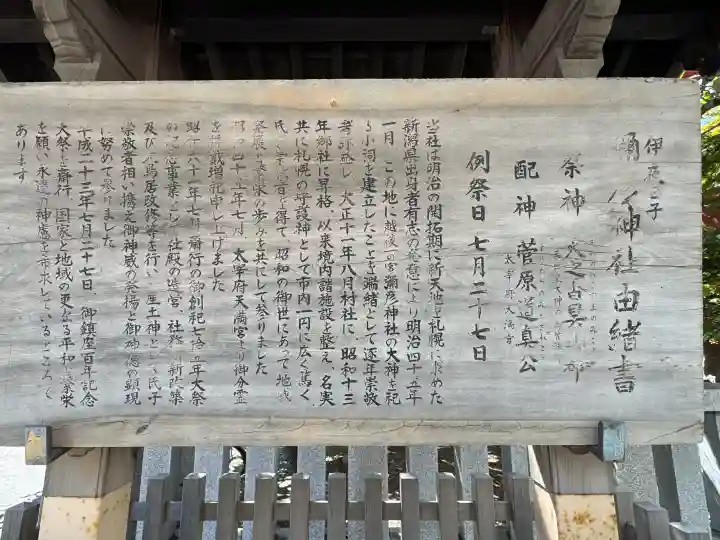 伊夜日子
彌彦神社由緒書
祭神
配神 菅原道真公
太宰府天満宮
例祭日 七月二十七日
当社は明治の開拓期に新天地を札幌に求めた
新潟県出身者有志の発意により明治四十五年
一月 この地に越後一の宮彌彦神社の大神を祀
る小祠を建立したことを端緒として逐年崇敬
大正十一年八月村社に、昭和十三
年郷社に昇格、以来境内諸施設を整え、名実
共に札幌の守護神として市内一円に広く篤く
を得て、昭和の御世にあって地域
発展と繁栄の歩みを共にして参りました
七月、太宰府天満宮より御分霊
増祀申し上げました
七月、斎行の御創祀七拾五年大祭
記念事業として社殿の造営、社務所新築
及び大鳥居改修等を行い、産土神として氏子
崇敬者相い携え御神威の発揚と御神徳の顕現
に努めて参りました
平成二十三年七月二十七日、御鎮座百年記念
大祭を斎行、国家と地域の更なる平和と栄
を願い永遠の神慮を希求しているところで
あります